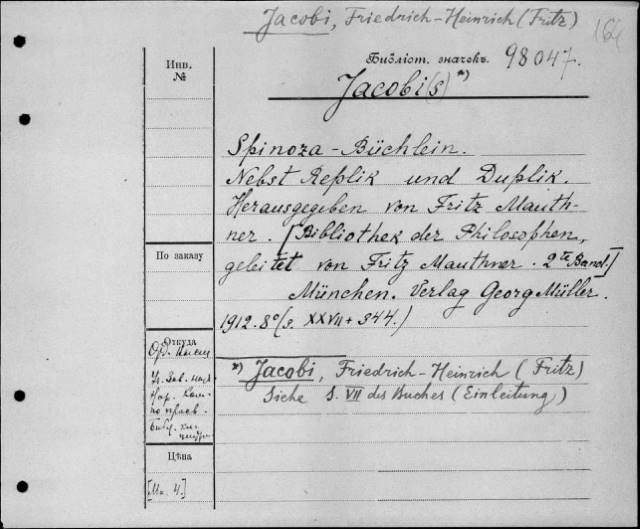 Jacobi, Friedrich-Heinrich (Fritz)
Инв.
№
Библіот. значекъ. 98047.
Jacobi(s) *)
Spinoza-Büchlein.
Nebst Replik und Duplik.
Herausgegeben von Fritz Mauth-
ner. [Bibliothek der Philosophen,
geleitet von Fritz Mauthner. 2te Band.]
München. Verlag Georg Müller.
1912. 8° (s. XXVII + 344.)
По заказу
*) Jacobi, Friedrich-Heinrich (Fritz)
Siehe S. VII des Buches (Einleitung)
Откуда
Цѣна
[Mк. 4.]